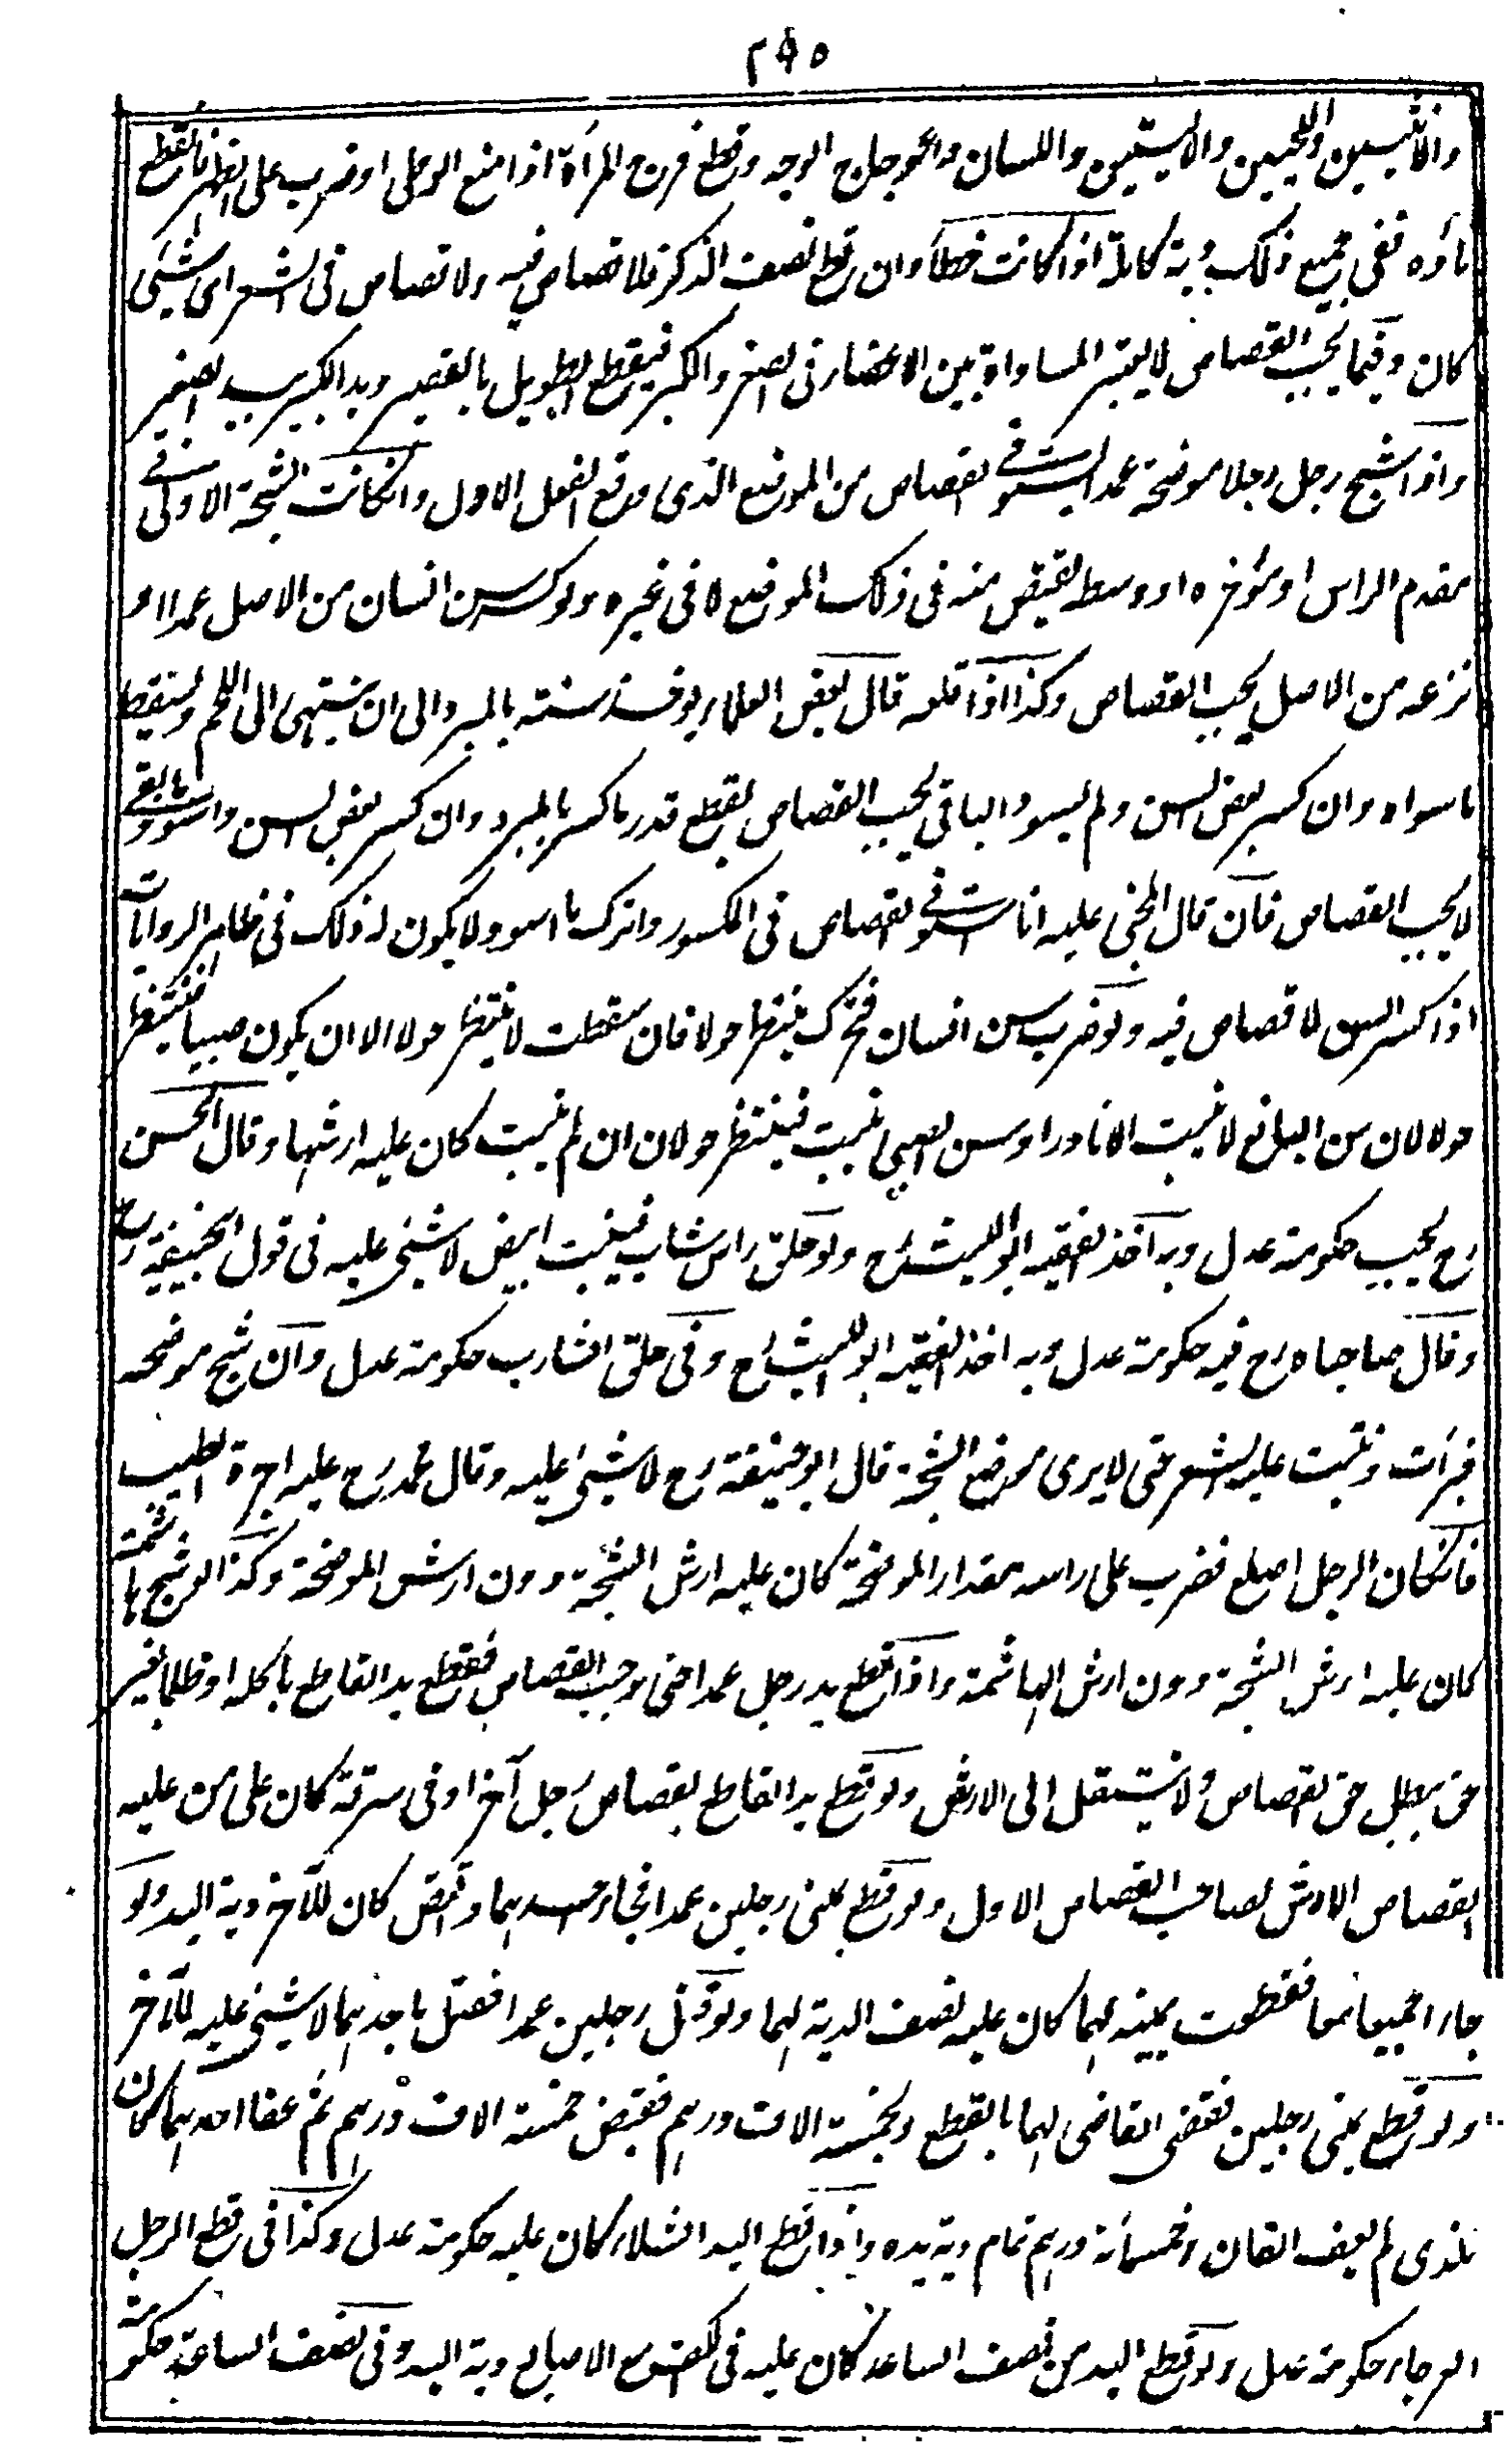 ٢٩٥
والانثيين واللحيين والاليتين واللسان واعوجاج الوجه وقطع فرج المرأة اذا منع الوطى او ضرب على الظهر فانقطع
ماؤه ففى جميع ذلك دية كاملة اذا كانت خطأ وان قطع نصف الذكر فلا قصاص فيه ولا قصاص فى الشعر اى شيئى
كان وفيما يجب القصاص لا يعتبر المساواة بين الاعضاء فى الصغر والكبر فيقطع الطويل بالقصير ويد الكبير بيد الصغير
واذا شج رجل رجلا موضحة عمدا يستوفى القصاص من الموضع الذى وقع الفعل الاول وانكانت الشجة الاولى فى
مقدم الراس او مؤخره او وسطه يقتص منه فى ذلك الموضع لا فى غيره ولو كسر سن انسان من الاصل عمدا او
نزعه من الاصل يجب القصاص وكذا اذا قلعه قال بعض العلماء يوخذ سنه بالمبرد الى ان ينتهى الى اللحم ويسقط
ما سواه وان كسر بعض السن ولم يسود الباقى يجب القصاص يقطع قدر ما كسر بالمبرد وان كسر بعض السن واسود ما بقى
لا يجب القصاص فان قال المجنى عليه انا استوفى القصاص فى المكسور واترك ما اسود لا يكون له ذلك فى ظاهر الروايات
اذا كسر السن لا قصاص فيه ولو ضرب سن انسان فتحرك ينتظر حولا فان سقطت لا ينتظر حولا الا ان يكون صبيا فينتظر
حولا لان سن البالغ لا ينبت الا نادرا وسن الصبى ينبت فينتظر حولا ان لم ينبت كان عليه ارشها وقال الحسن
رح يجب حكومة عدل وبه اخذ الفقيه ابو الليث رح ولو حلق راس شاب فينبت ابيض لا شيئى عليه فى قول ابيحنيفة رح
وقال صاحباه رح فيه حكومة عدل وبه اخذ الفقيه ابو الليث رح وفى حلق الشارب حكومة عدل وان شج موضحة
فبرأت ونبت عليه الشعر حتى لا يرى موضع الشجة قال ابو حنيفة رح لا شيئى عليه وقال محمد رح عليه اجرة الطبيب
فانكان الرجل اصلع فضرب على راسه مقدار الموضحة كان عليه ارش الشجة دون ارش الموضحة وكذا لو شج هاشمة
كان عليه ارش الشجة دون ارش الهاشمة واذا قطع يد رجل عمدا حتى وجب القصاص فقطع يد القاطع باكلة او ظلما بغير
حق يبطل حق القصاص ولا ينتقل الى الارش ولو قطع يد القاطع بقصاص رجل آخر او فى سرقة كان على من عليه
القصاص الارش لصاحب القصاص الاول ولو قطع يمنى رجلين عمدا فجاء احدهما واقتص كان للآخر دية اليد ولو
جاءا جميعا معا فقطعت يمينه لهما كان عليه نصف الدية لهما ولو قتل رجلين عمدا فقتل باحدهما لا شيئى عليه للآخر
ولو قطع يمنى رجلين فقضى القاضى لهما بالقطع وبخمسة الاف درهم فقبض خمسة الاف درهم ثم عفا احدهما كان
للذى لم يعف الفان وخمسمائة درهم تمام دية يده واذا قطع اليد الشلاء كان عليه حكومة عدل وكذا فى قطع الرجل
العرجاء حكومة عدل ولو قطع اليد من نصف الساعد كان عليه فى الكف مع الاصابع دية اليد وفى نصف الساعد حكومة